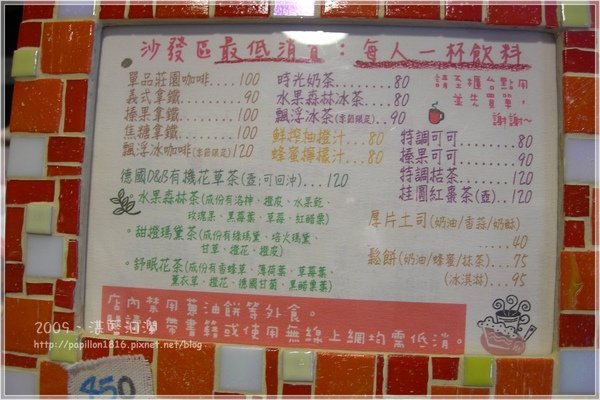 沙發區最低消費：每人一杯飲料
請至櫃台點用
並先買單，
謝謝~
單品莊園咖啡...100
義式拿鐵...90
榛果拿鐵...100
焦糖拿鐵...100
飄浮冰咖啡(季節限定)120
時光奶茶...80
水果森林冰茶...80
飄浮冰茶(季節限定)...90
鮮榨柚橙汁...80
蜂蜜檸檬汁...80
特調可可...80
榛果可可...90
特調抹茶...120
桂圓紅棗茶(壺)..120
德國D&B有機花草茶(壺;可回沖)...120
水果森林茶(成份有洛神、橙皮、水果乾、
玫瑰果、黑莓葉、草莓、紅醋栗)
甜橙瑪黛茶(成份有綠瑪黛、培火瑪黛、
甘草、橙花、橙皮)
舒眠花茶(成份有香蜂草、薄荷葉、草莓葉、
薰衣草、橙花、德國甘菊、黑醋栗葉)
厚片土司(奶油/香蒜/奶酥)
...40
鬆餅(奶油/蜂蜜/抹茶)...75
(冰淇淋)...95
店內禁用蔥油餅等外食。
帶書籍或使用無線上網均需低消。
2009、
http://papillon1816.pixnet.net/blog
450